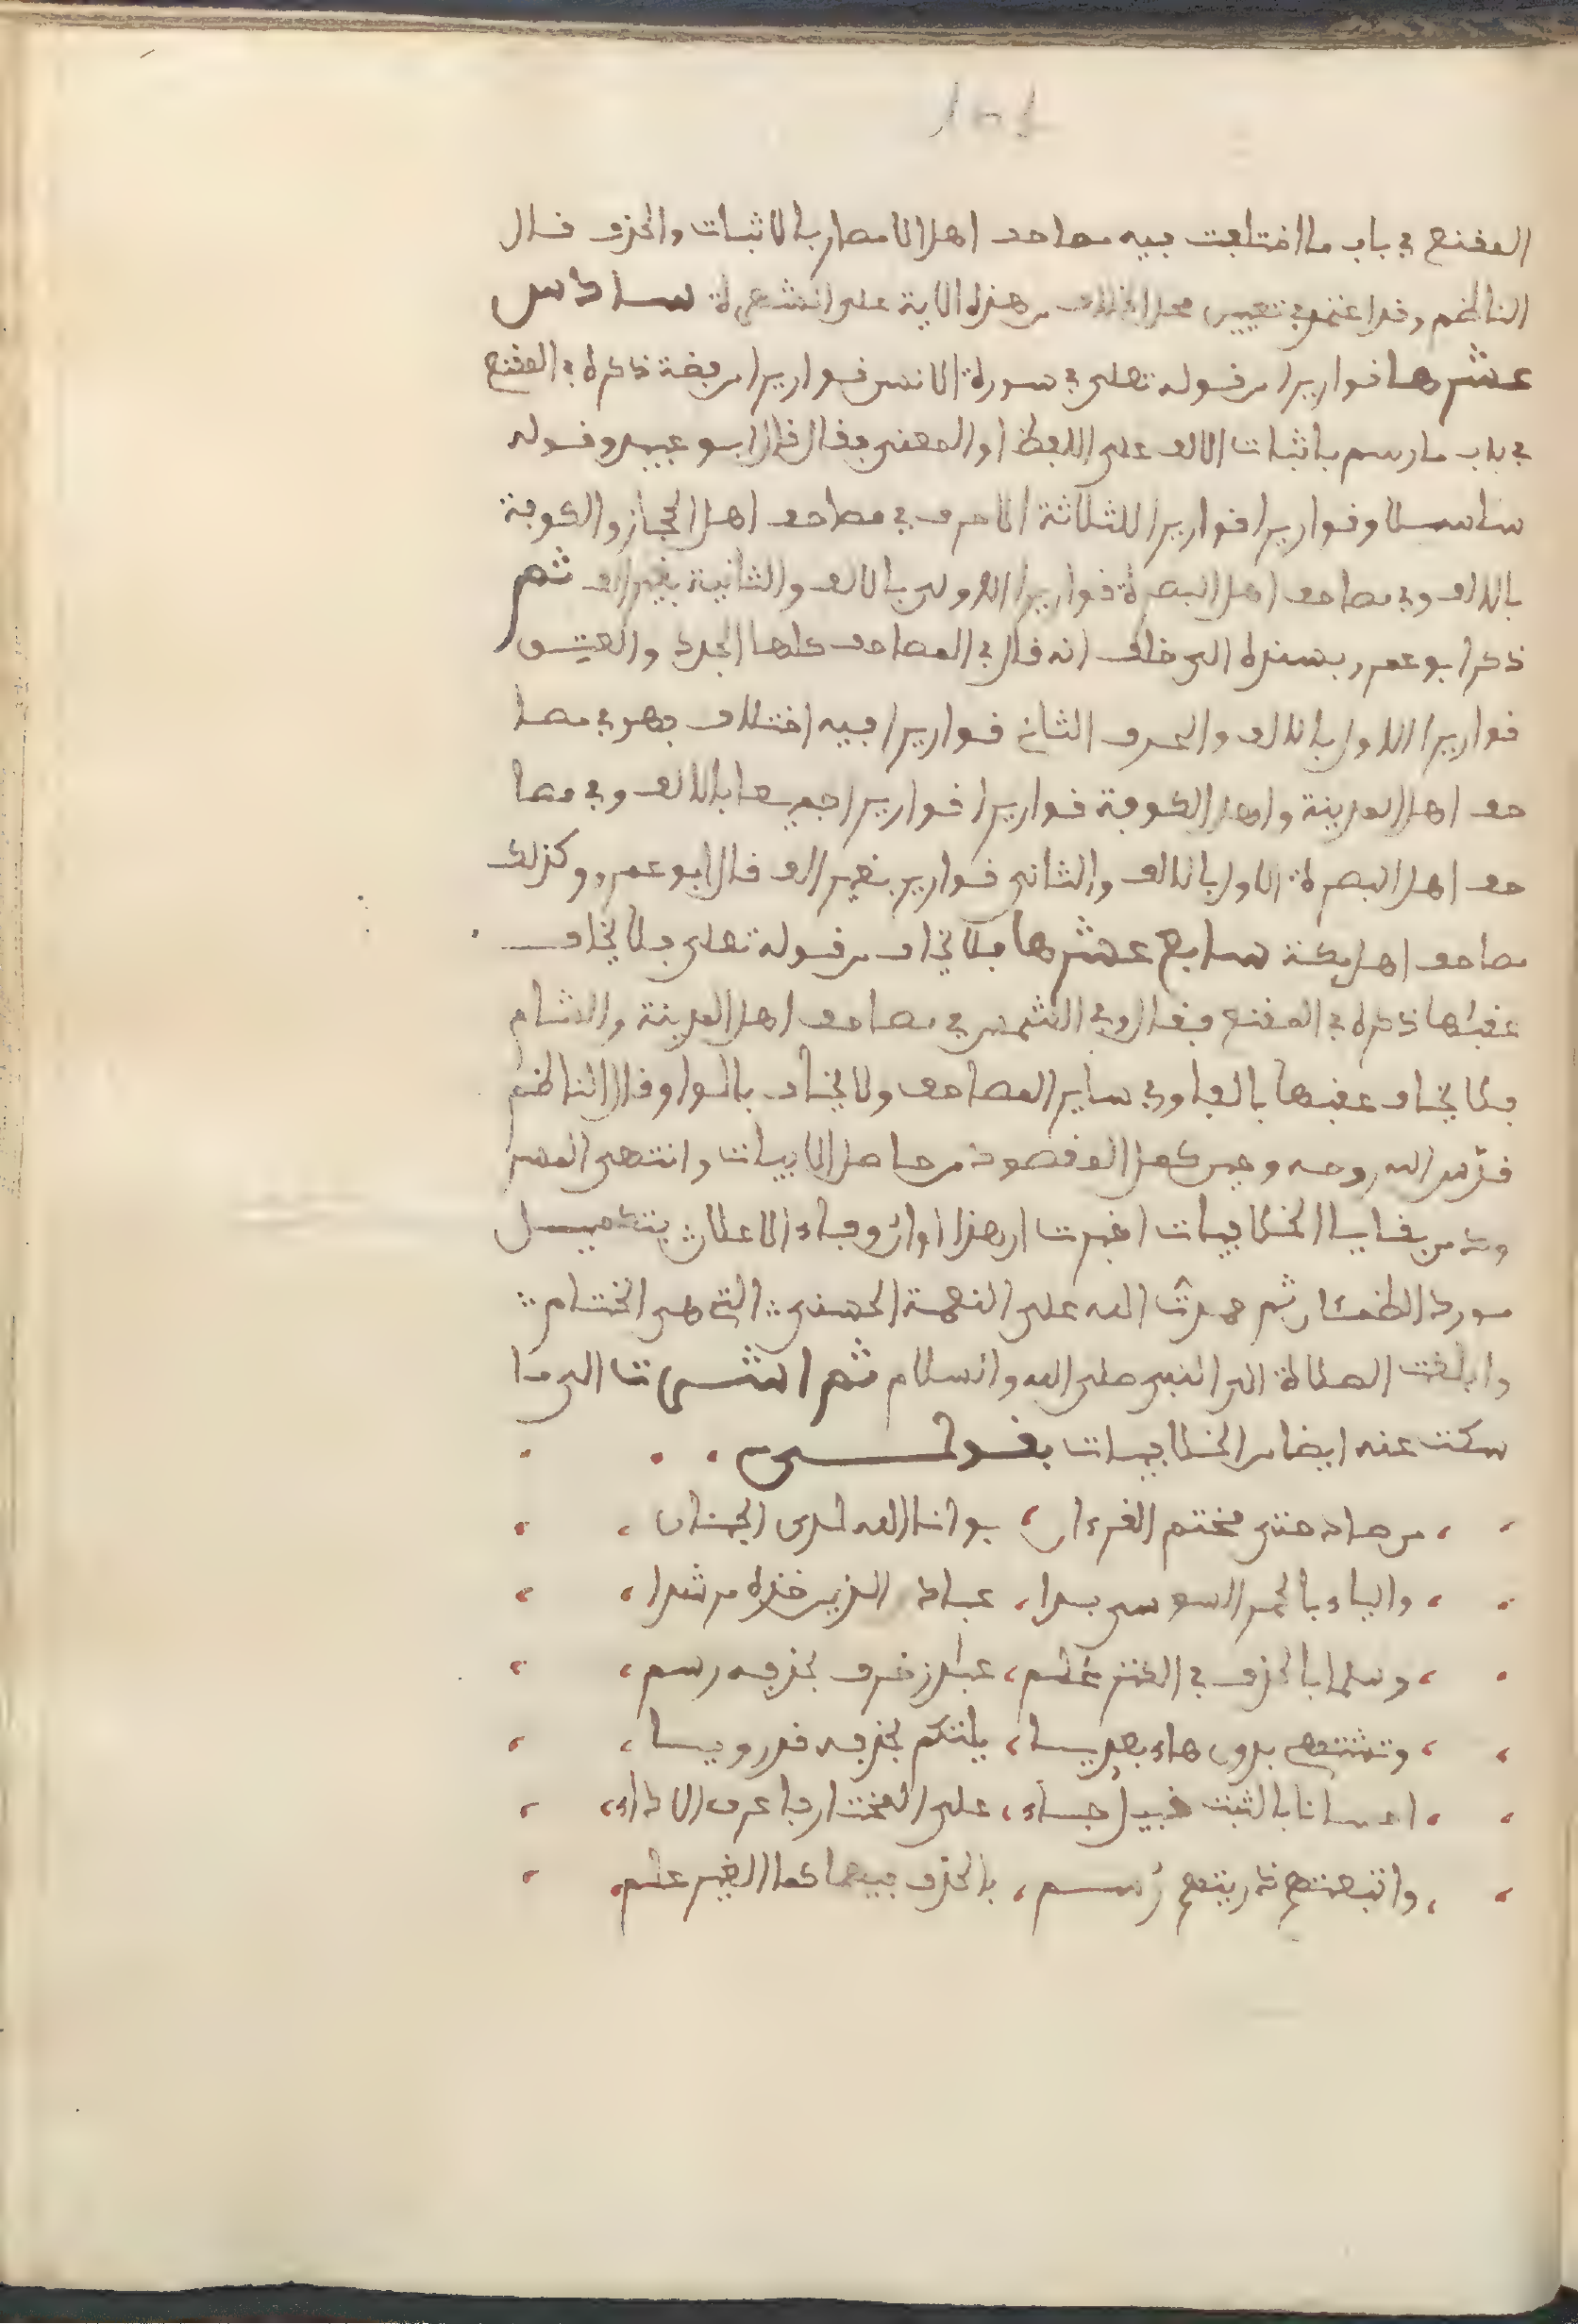 المقنع في باب ما اختلفت فيه مصاحف اهل الامصار بالاثبات والحذف قال
الناظم وقد اعتمد في تعيين محل الخلاف من هذه الاية على الشهرة سادس
عشرها قواريرا من قوله تعلى في سورة الانسن قواريرا من فضة ذكره في المقنع
في باب ما رسم باثبات الالف على اللفظ او المعنى فقال قال ابو عبيد وقوله
سلسلا وقواريرا قواريرا الثلاثة الاحرف في مصاحف اهل الحجاز والكوفة
بالالف وفي مصاحف اهل البصرة قواريرا الاولى بالالف والثانية بغير الف ثم
ذكر ابو عمرو بسنده الى خلف انه قال في المصاحف كلها الجدد والعتيق
قواريرا الاول بالالف والحرف الثاني قواريرا فيه اختلاف فهو في مصا
حف اهل المدينة واهل الكوفة قواريرا قواريرا جميعا بالالف وفي مصا
حف اهل البصرة الاول بالالف والثاني قوارير بغير الف قال ابو عمرو وكذلك
مصاحف اهل مكة سابع عشرها فلا يخاف من قوله تعلى فلا يخاف
عقبها ذكره في المقنع فقال وفي الشمس في مصاحف اهل المدينة والشام
فلا يخاف عقبها بالفا وفي ساير المصاحف ولا يخاف بالواو قال الناظم
قدس الله روحه وحين كمل المقصود من حاصل الابيات وانتهى
من بقايا الخلافيات اخبرت ان هذا اوان وفاء الاعلان بتكميل
مورد الظمئان ثم حمدت الله على النعمة الحسنى التي هي الختام
وابلغت الصلاة الى النبي صلى الله والسلام ثم اشرت الى ما
سكت عنه ايضا من الخلافيات بقولي
من صاد حتى مختم القرءان بوانا الله لدى الجنان
والياء بالحمر السوسي بدا عباد الذين خذه مرشدا
وسلما بالحذف في الغير علم عبد زخرف بحذفه رسم
وتشتهي بدون هاء بعد يا يلتكم بحذفه قد رويا
احسانا بالثبت قبيل جاء على المختار فاعرف الاداء
واتبعتهم ذريتهم رسم بالحذف فيهما كما الغير علم